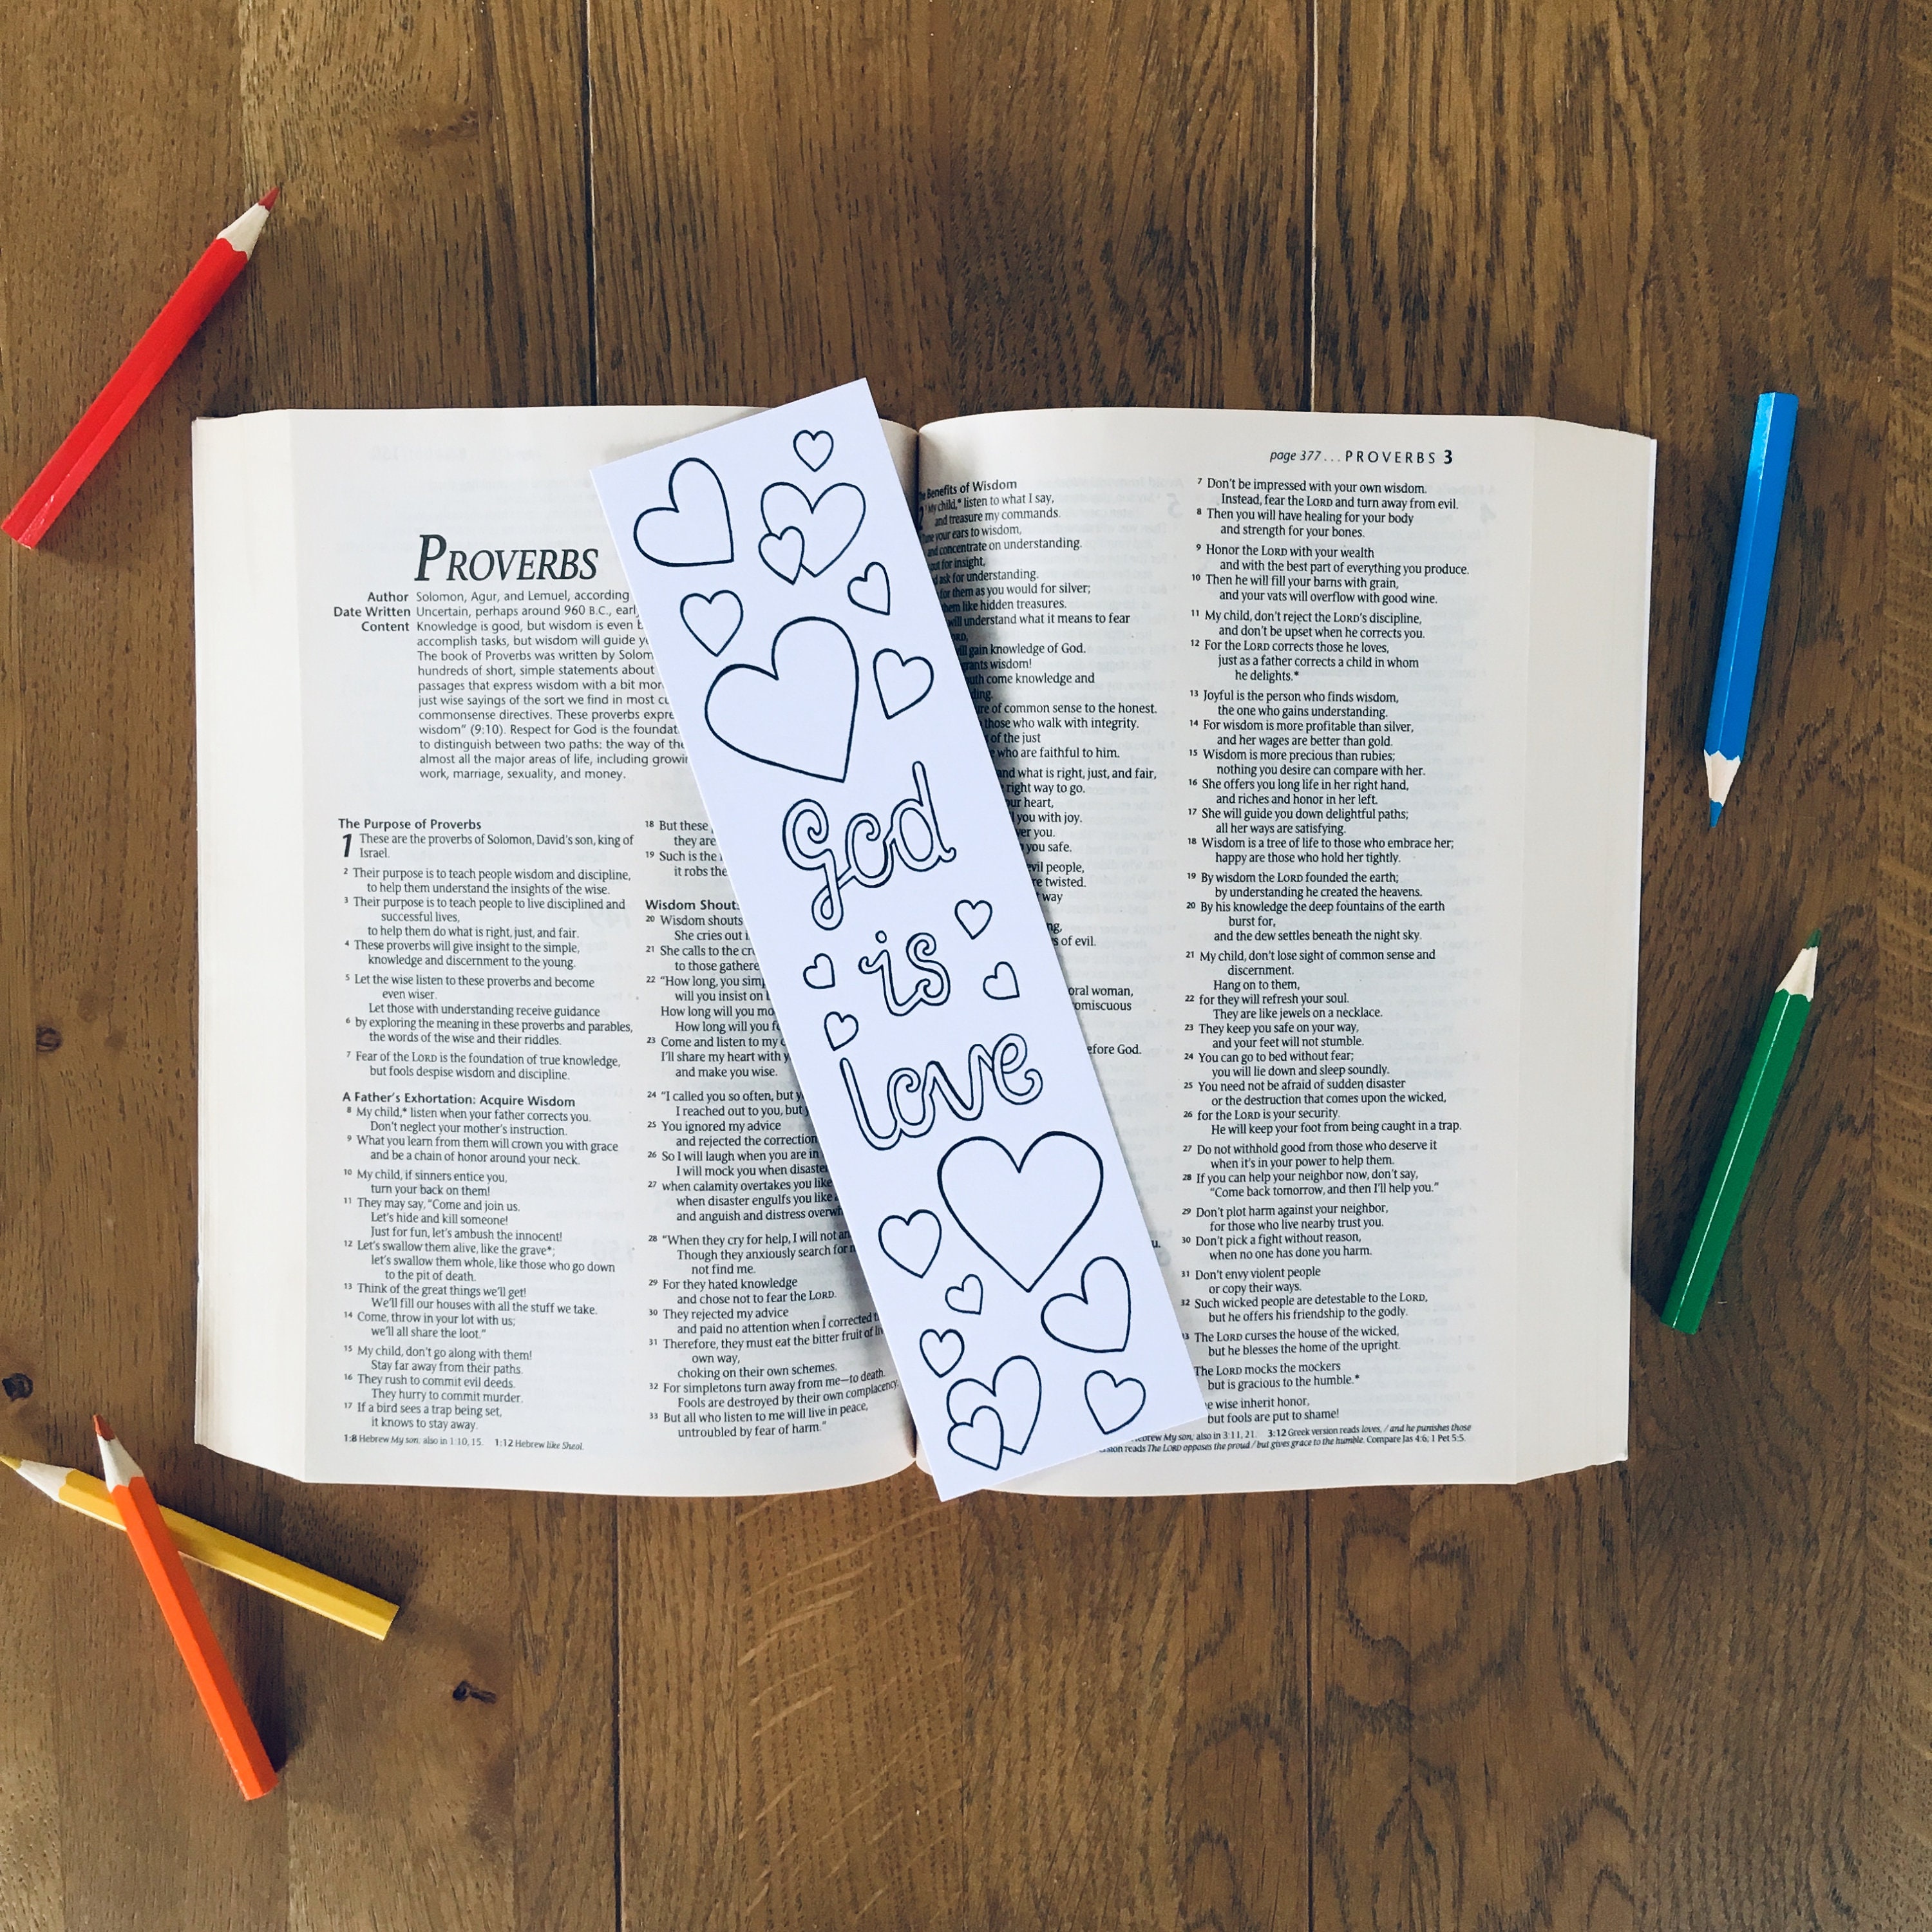 PROVERBS
Author Solomon, Agur, and Lemuel, according
Date Written Uncertain, perhaps around 960 B.C.,
Content Knowledge is good, but wisdom is even
accomplish tasks, but wisdom will guide
The book of Proverbs was written by
hundreds of short, simple statements about
passages that express wisdom with a bit
just wise sayings of the sort we find in most
commonsense directives. These proverbs
wisdom" (9:10). Respect for God is the
to distinguish between two paths: the way of the
almost all the major areas of life, including
work, marriage, sexuality, and money.
The Purpose of Proverbs
1 These are the proverbs of Solomon, David's son, king of
Israel.
2 Their purpose is to teach people wisdom and discipline,
to help them understand the insights of the wise.
3 Their purpose is to teach people to live disciplined and
successful lives,
to help them do what is right, just, and fair.
4 These proverbs will give insight to the simple,
knowledge and discernment to the young.
5 Let the wise listen to these proverbs and become
even wiser.
Let those with understanding receive guidance
6 by exploring the meaning in these proverbs and parables,
the words of the wise and their riddles.
7 Fear of the LORD is the foundation of true knowledge,
but fools despise wisdom and discipline.
A Father's Exhortation: Acquire Wisdom
8 My child,* listen when your father corrects you.
Don't neglect your mother's instruction.
9 What you learn from them will crown you with grace
and be a chain of honor around your neck.
10 My child, if sinners entice you,
turn your back on them!
11 They may say, "Come and join us.
Let's hide and kill someone!
Just for fun, let's ambush the innocent!
12 Let's swallow them alive, like the grave*;
let's swallow them whole, like those who go down
to the pit of death.
13 Think of the great things we'll get!
We'll fill our houses with all the stuff we take.
14 Come, throw in your lot with us;
we'll all share the loot."
15 My child, don't go along with them!
Stay far away from their paths.
16 They rush to commit evil deeds.
They hurry to commit murder.
17 If a bird sees a trap being set,
it knows to stay away.
1:8 Hebrew My son; also in 1:10, 15. 1:12 Hebrew like Sheol.
18 But these
they are
19 Such is the
it robs the
Wisdom Shouts
20 Wisdom shouts
She cries out
21 She calls to the
to those
22 "How long, you
will you insist on
How long will you
How long will you
23 Come and listen to my
I'll share my heart with
and make you wise.
24 "I called you so often, but
I reached out to you, but
25 You ignored my advice
and rejected the correction
26 So I will laugh when you are in
I will mock you when
27 when calamity overtakes you like
when disaster engulfs you like
and anguish and distress
28 "When they cry for help, I will not
Though they anxiously search for
not find me.
29 For they hated knowledge
and chose not to fear the LORD.
30 They rejected my advice
and paid no attention when I corrected
31 Therefore, they must eat the bitter fruit of
own way,
choking on their own schemes.
32 For simpletons turn away from me—to death.
Fools are destroyed by their own complacency.
33 But all who listen to me will live in peace,
untroubled by fear of harm."
god
is
love
page 377 . . . PROVERBS 3
Benefits of Wisdom
My child,* listen to what I say,
and treasure my commands.
your ears to wisdom,
and concentrate on understanding.
out for insight,
ask for understanding.
for them as you would for silver;
them like hidden treasures.
will understand what it means to fear
gain knowledge of God.
grants wisdom!
come knowledge and
of common sense to the honest.
those who walk with integrity.
of the just
who are faithful to him.
what is right, just, and fair,
right way to go.
heart,
you with joy.
you.
you safe.
evil people,
twisted.
way
of evil.
woman,
before God.
7 Don't be impressed with your own wisdom.
Instead, fear the LORD and turn away from evil.
8 Then you will have healing for your body
and strength for your bones.
9 Honor the LORD with your wealth
and with the best part of everything you produce.
10 Then he will fill your barns with grain,
and your vats will overflow with good wine.
11 My child, don't reject the LORD's discipline,
and don't be upset when he corrects you.
12 For the LORD corrects those he loves,
just as a father corrects a child in whom
he delights.*
13 Joyful is the person who finds wisdom,
the one who gains understanding.
14 For wisdom is more profitable than silver,
and her wages are better than gold.
15 Wisdom is more precious than rubies;
nothing you desire can compare with her.
16 She offers you long life in her right hand,
and riches and honor in her left.
17 She will guide you down delightful paths;
all her ways are satisfying.
18 Wisdom is a tree of life to those who embrace her;
happy are those who hold her tightly.
19 By wisdom the LORD founded the earth;
by understanding he created the heavens.
20 By his knowledge the deep fountains of the earth
burst for,
and the dew settles beneath the night sky.
21 My child, don't lose sight of common sense and
discernment.
Hang on to them,
22 for they will refresh your soul.
They are like jewels on a necklace.
23 They keep you safe on your way,
and your feet will not stumble.
24 You can go to bed without fear;
you will lie down and sleep soundly.
25 You need not be afraid of sudden disaster
or the destruction that comes upon the wicked,
26 for the LORD is your security.
He will keep your foot from being caught in a trap.
27 Do not withhold good from those who deserve it
when it's in your power to help them.
28 If you can help your neighbor now, don't say,
"Come back tomorrow, and then I'll help you."
29 Don't plot harm against your neighbor,
for those who live nearby trust you.
30 Don't pick a fight without reason,
when no one has done you harm.
31 Don't envy violent people
or copy their ways.
32 Such wicked people are detestable to the LORD,
but he offers his friendship to the godly.
The LORD curses the house of the wicked,
but he blesses the home of the upright.
The LORD mocks the mockers
but is gracious to the humble.*
wise inherit honor,
but fools are put to shame!
My son; also in 3:11, 21. 3:12 Greek version reads loves, / and he punishes those
reads The LORD opposes the proud / but gives grace to the humble. Compare Jas 4:6; 1 Pet 5:5.